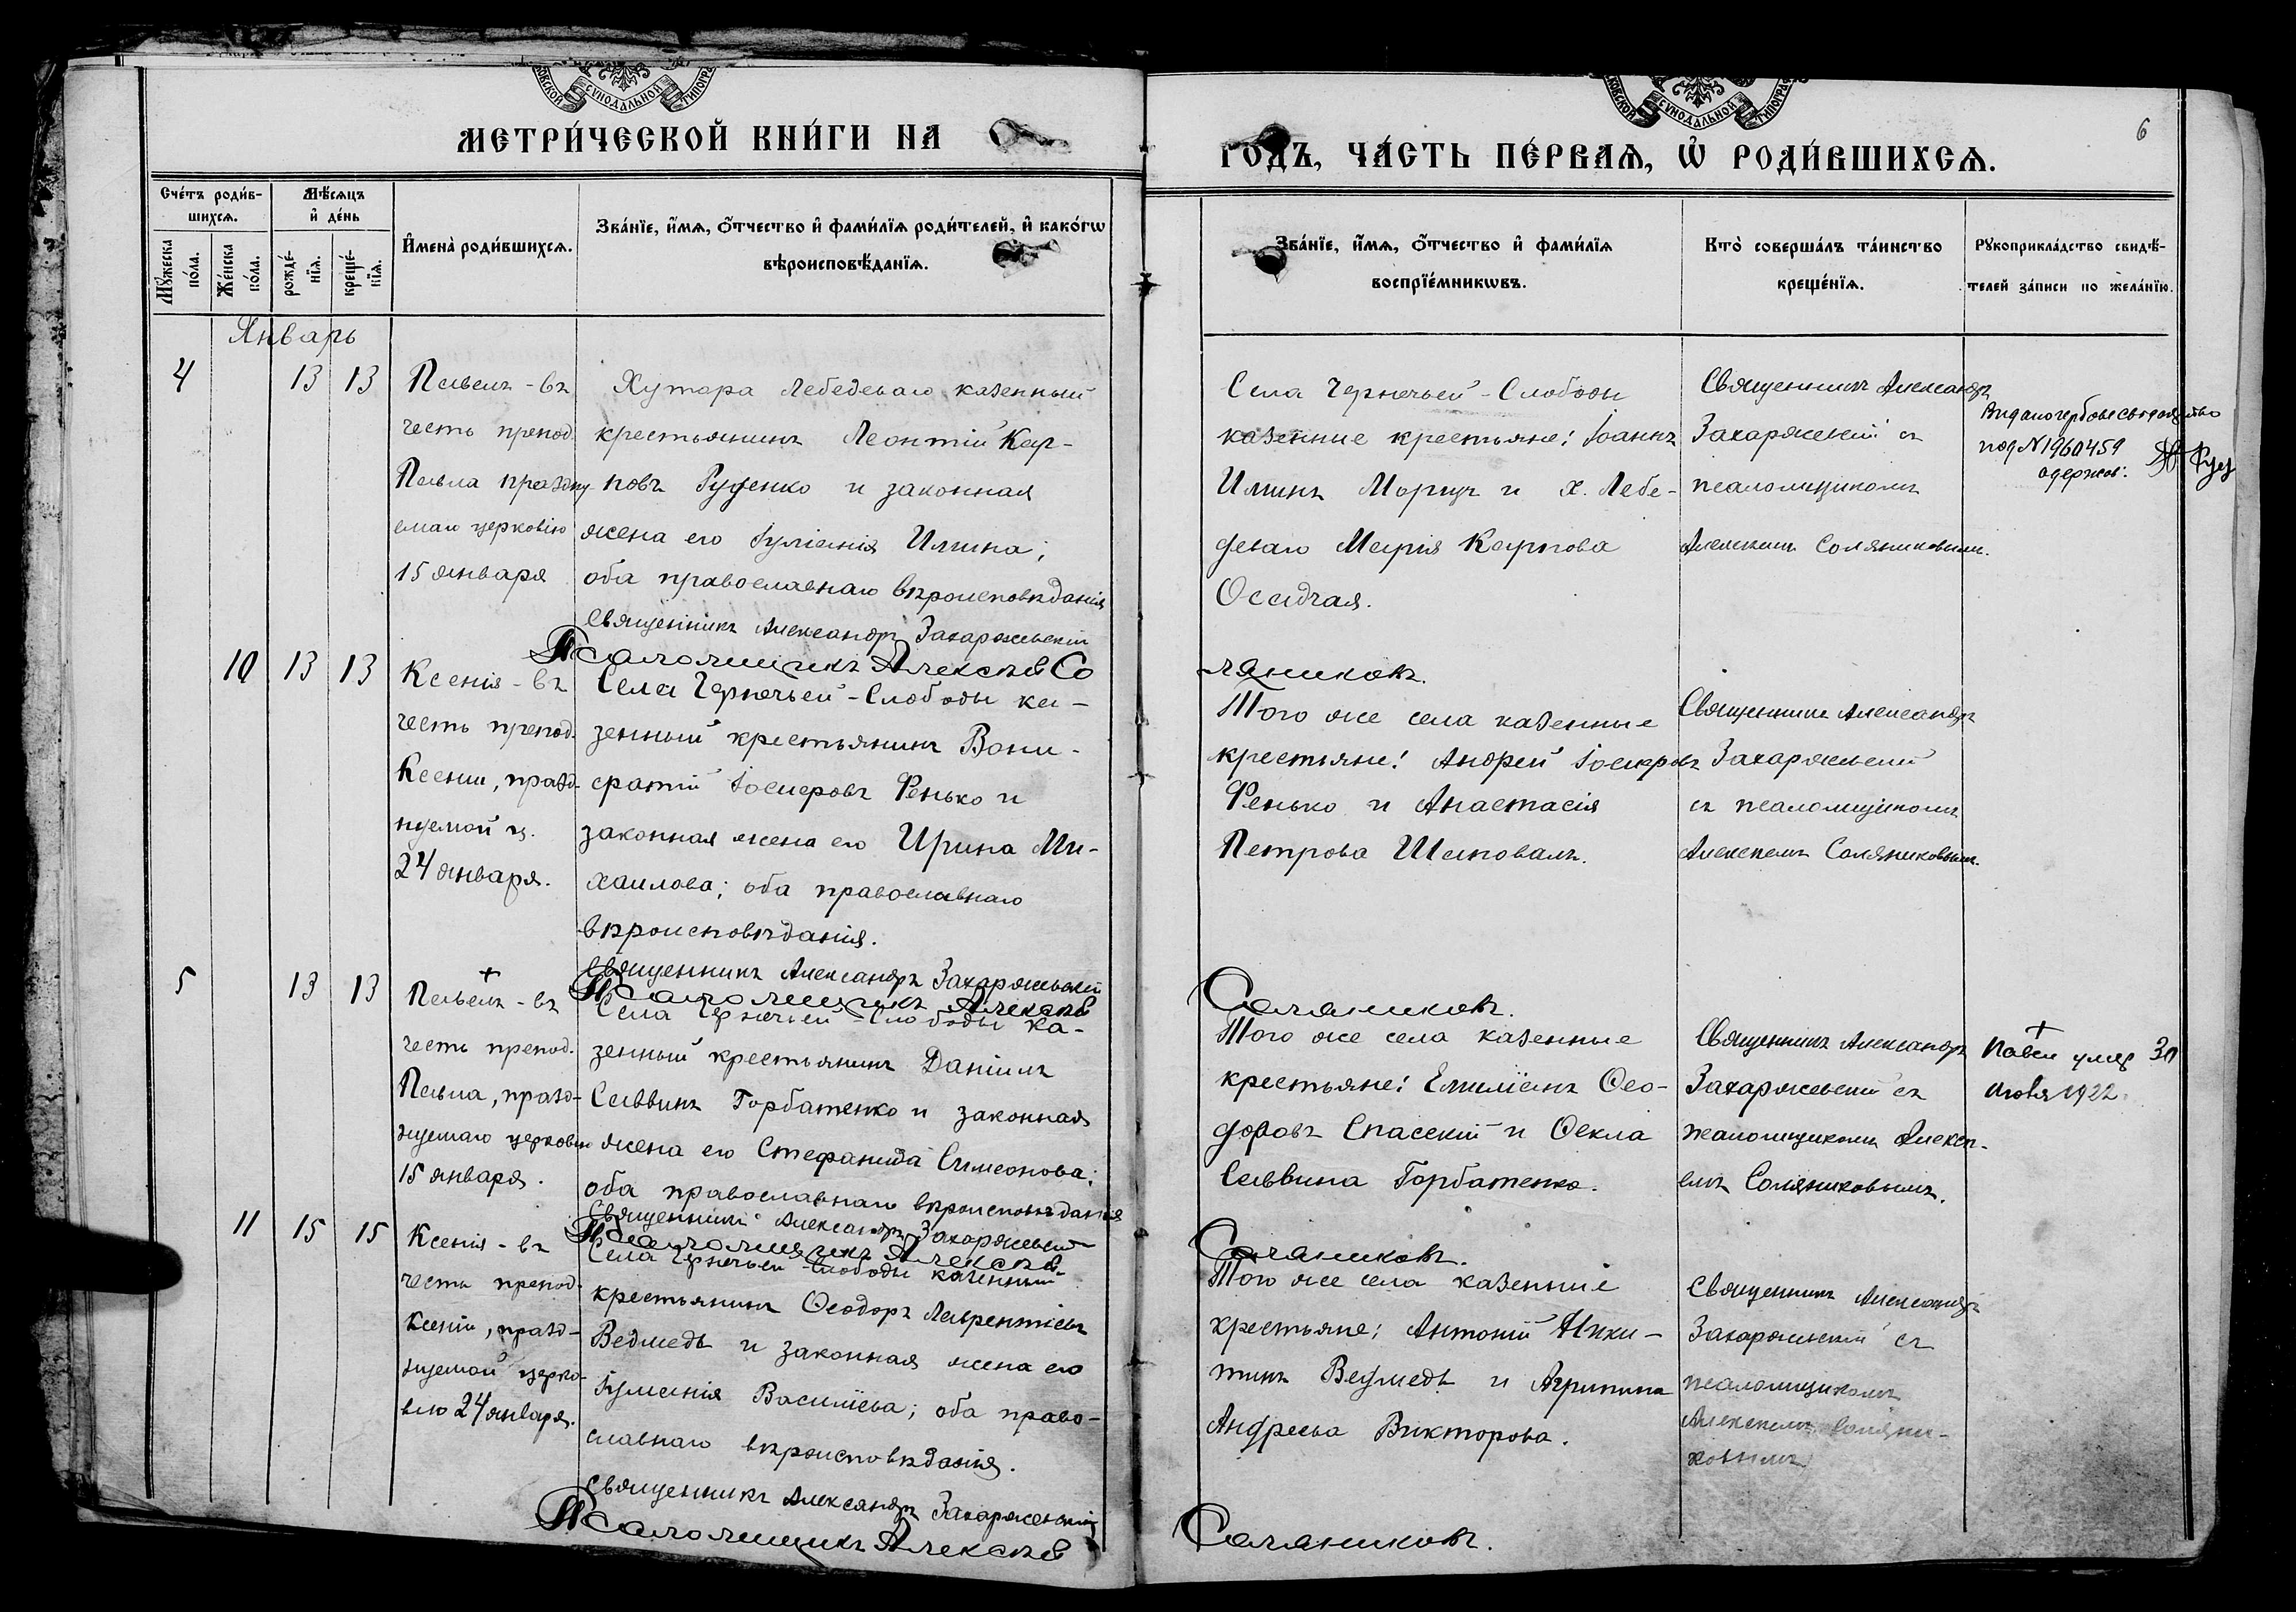 МЕТРИ́ЧЕСКОЙ КНИ́ГИ НА
ГО́ДЪ, ЧА́СТЬ ПЕ́РВАЯ, Ѡ҆ РОДИ́ВШИХСЯ.
6
Сче́тъ роди́в-
шихся.
Мѣ́сяцъ
и҆ де́нь
И҆мена̀ роди́вшихся.
Зва́нїе, и҆́мя, о҆́тчество и҆ фами́лїя роди́телей, и҆ како́гѡ
вѣроисповѣ́данїя.
Мꙋ́жеска
по́ла.
Же́нска
по́ла.
рожде́-
нїя.
креще́-
нїя.
Зва́нїе, и҆́мя, о҆́тчество и҆ фами́лїя
воспрїе́мникѡвъ.
Кто̀ соверша́лъ та́инство
креще́нїя.
Рꙋкоприкла́дство свидѣ́-
телей за́писи по жела́нїю.
Январь
4 13 13
Павелъ - въ
честь препод.
Павла праздну-
емаго церковію
15 января
Хутора Лебедеваго казенный
крестьянинъ Леонтій Кар-
повъ Руденко и законная
жена его Іуліанія Ильина;
оба православнаго вѣроисповѣданія
Священникъ Александръ Захаржевскій
Псаломщикъ Алексѣй Со
ляниковъ.
Села Чернечьей - Слободы
казенные крестьяне: Іоаннъ
Ильинъ Морщъ и х. Лебе-
деваго Марія Карпова
Осадчая.
Священникъ Александръ
Захаржевскій съ
псаломщикомъ
Алексѣемъ Соляниковымъ.
под N 1960459
одержав:
10 13 13
Ксенія - въ
честь препод.
Ксеніи, празд-
нуемой ц.
24 января.
Села Чернечьей - Слободы ка-
зенный крестьянинъ Вони-
фатій Іосифовъ Фенько и
законная жена его Ирина Ми-
хаилова; оба православнаго
вѣроисповѣданія.
Священникъ Александръ Захаржевскій
Псаломщикъ Алексѣй
Соляниковъ.
Того же села казенные
крестьяне: Андрей Іосифовъ
Фенько и Анастасія
Петрова Шаповалъ.
Священникъ Александръ
Захаржевскій
съ псаломщикомъ
Алексѣемъ Соляниковымъ.
5 13 13
+
Павелъ - въ
честь препод.
Павла, празд-
нуемаго церковію
15 января.
Села Чернечьей - Слободы ка-
зенный крестьянинъ Даніилъ
Саввинъ Горбатенко и законная
жена его Стефанида Симеонова;
оба православнаго вѣроисповѣданія
Священникъ Александръ Захаржевскій
Псаломщикъ Алексѣй
Соляниковъ.
Того же села казенные
крестьяне: Емиліанъ Ѳео-
доровъ Спасскій и Ѳекла
Саввина Горбатенко.
Священникъ Александръ
Захаржевскій съ
псаломщикомъ Алексѣ-
емъ Соляниковымъ.
+
Павел умер 30
1922.
11 15 15
Ксенія - въ
честь препод.
Ксеніи, празд-
нуемой церко-
вію 24 января.
Села Чернечьей - Слободы казенный
крестьянинъ Ѳеодоръ Лаврентіевъ
Ведмедь и законная жена его
Іуліанія Васильева; оба право-
славнаго вѣроисповѣданія.
Священникъ Александръ Захаржевскій
Псаломщикъ Алексѣй
Соляниковъ.
Того же села казенные
крестьяне: Антоній Ники-
тинъ Ведмедь и Агрипина
Андреева Викторова.
Священникъ Александръ
Захаржевскій съ
псаломщикомъ
Алексѣемъ Соляни-
ковымъ